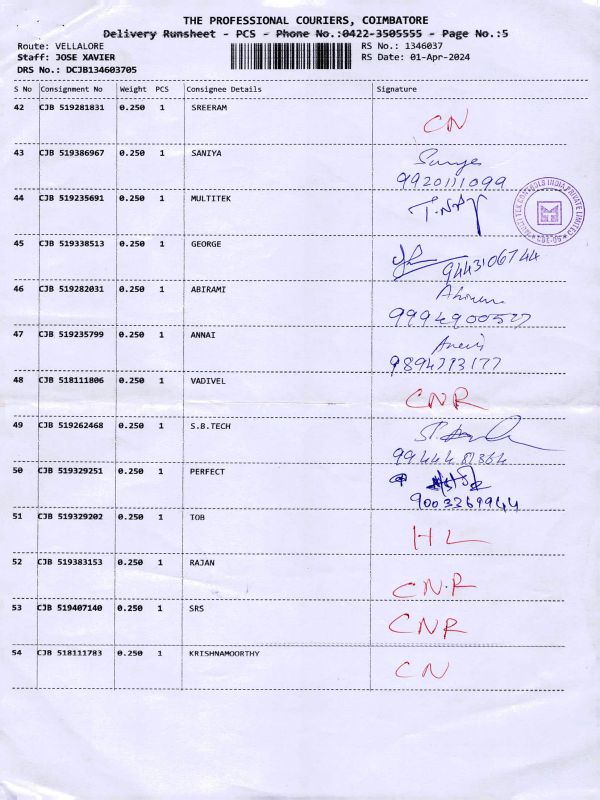 THE PROFESSIONAL COURIERS, COIMBATORE
Delivery Runsheet - PCS - Phone No.:0422-3505555 - Page No.:5
Route: VELLALORE RS No.: 1346037
Staff: JOSE XAVIER RS Date: 01-Apr-2024
DRS No.: DCJB134603705
S No Consignment No Weight PCS Consignee Details Signature
42 CJB 519281831 0.250 1 SREERAM
CN
43 CJB 519386967 0.250 1 SANIYA
9920111099
44 CJB 519235691 0.250 1 MULTITEK
MULTITEK CONTROLS INDIA PRIVATE LIMITED
45 CJB 519338513 0.250 1 GEORGE
9443106744
46 CJB 519282031 0.250 1 ABIRAMI
9994900527
47 CJB 519235799 0.250 1 ANNAI
48 CJB 518111806 0.250 1 VADIVEL
CNR
49 CJB 519262468 0.250 1 S.B.TECH
50 CJB 519329251 0.250 1 PERFECT
9003269944
51 CJB 519329202 0.250 1 IOB
HL
52 CJB 519383153 0.250 1 RAJAN
CN.R
53 CJB 519407140 0.250 1 SRS
CNR
54 CJB 518111783 0.250 1 KRISHNAMOORTHY
CN